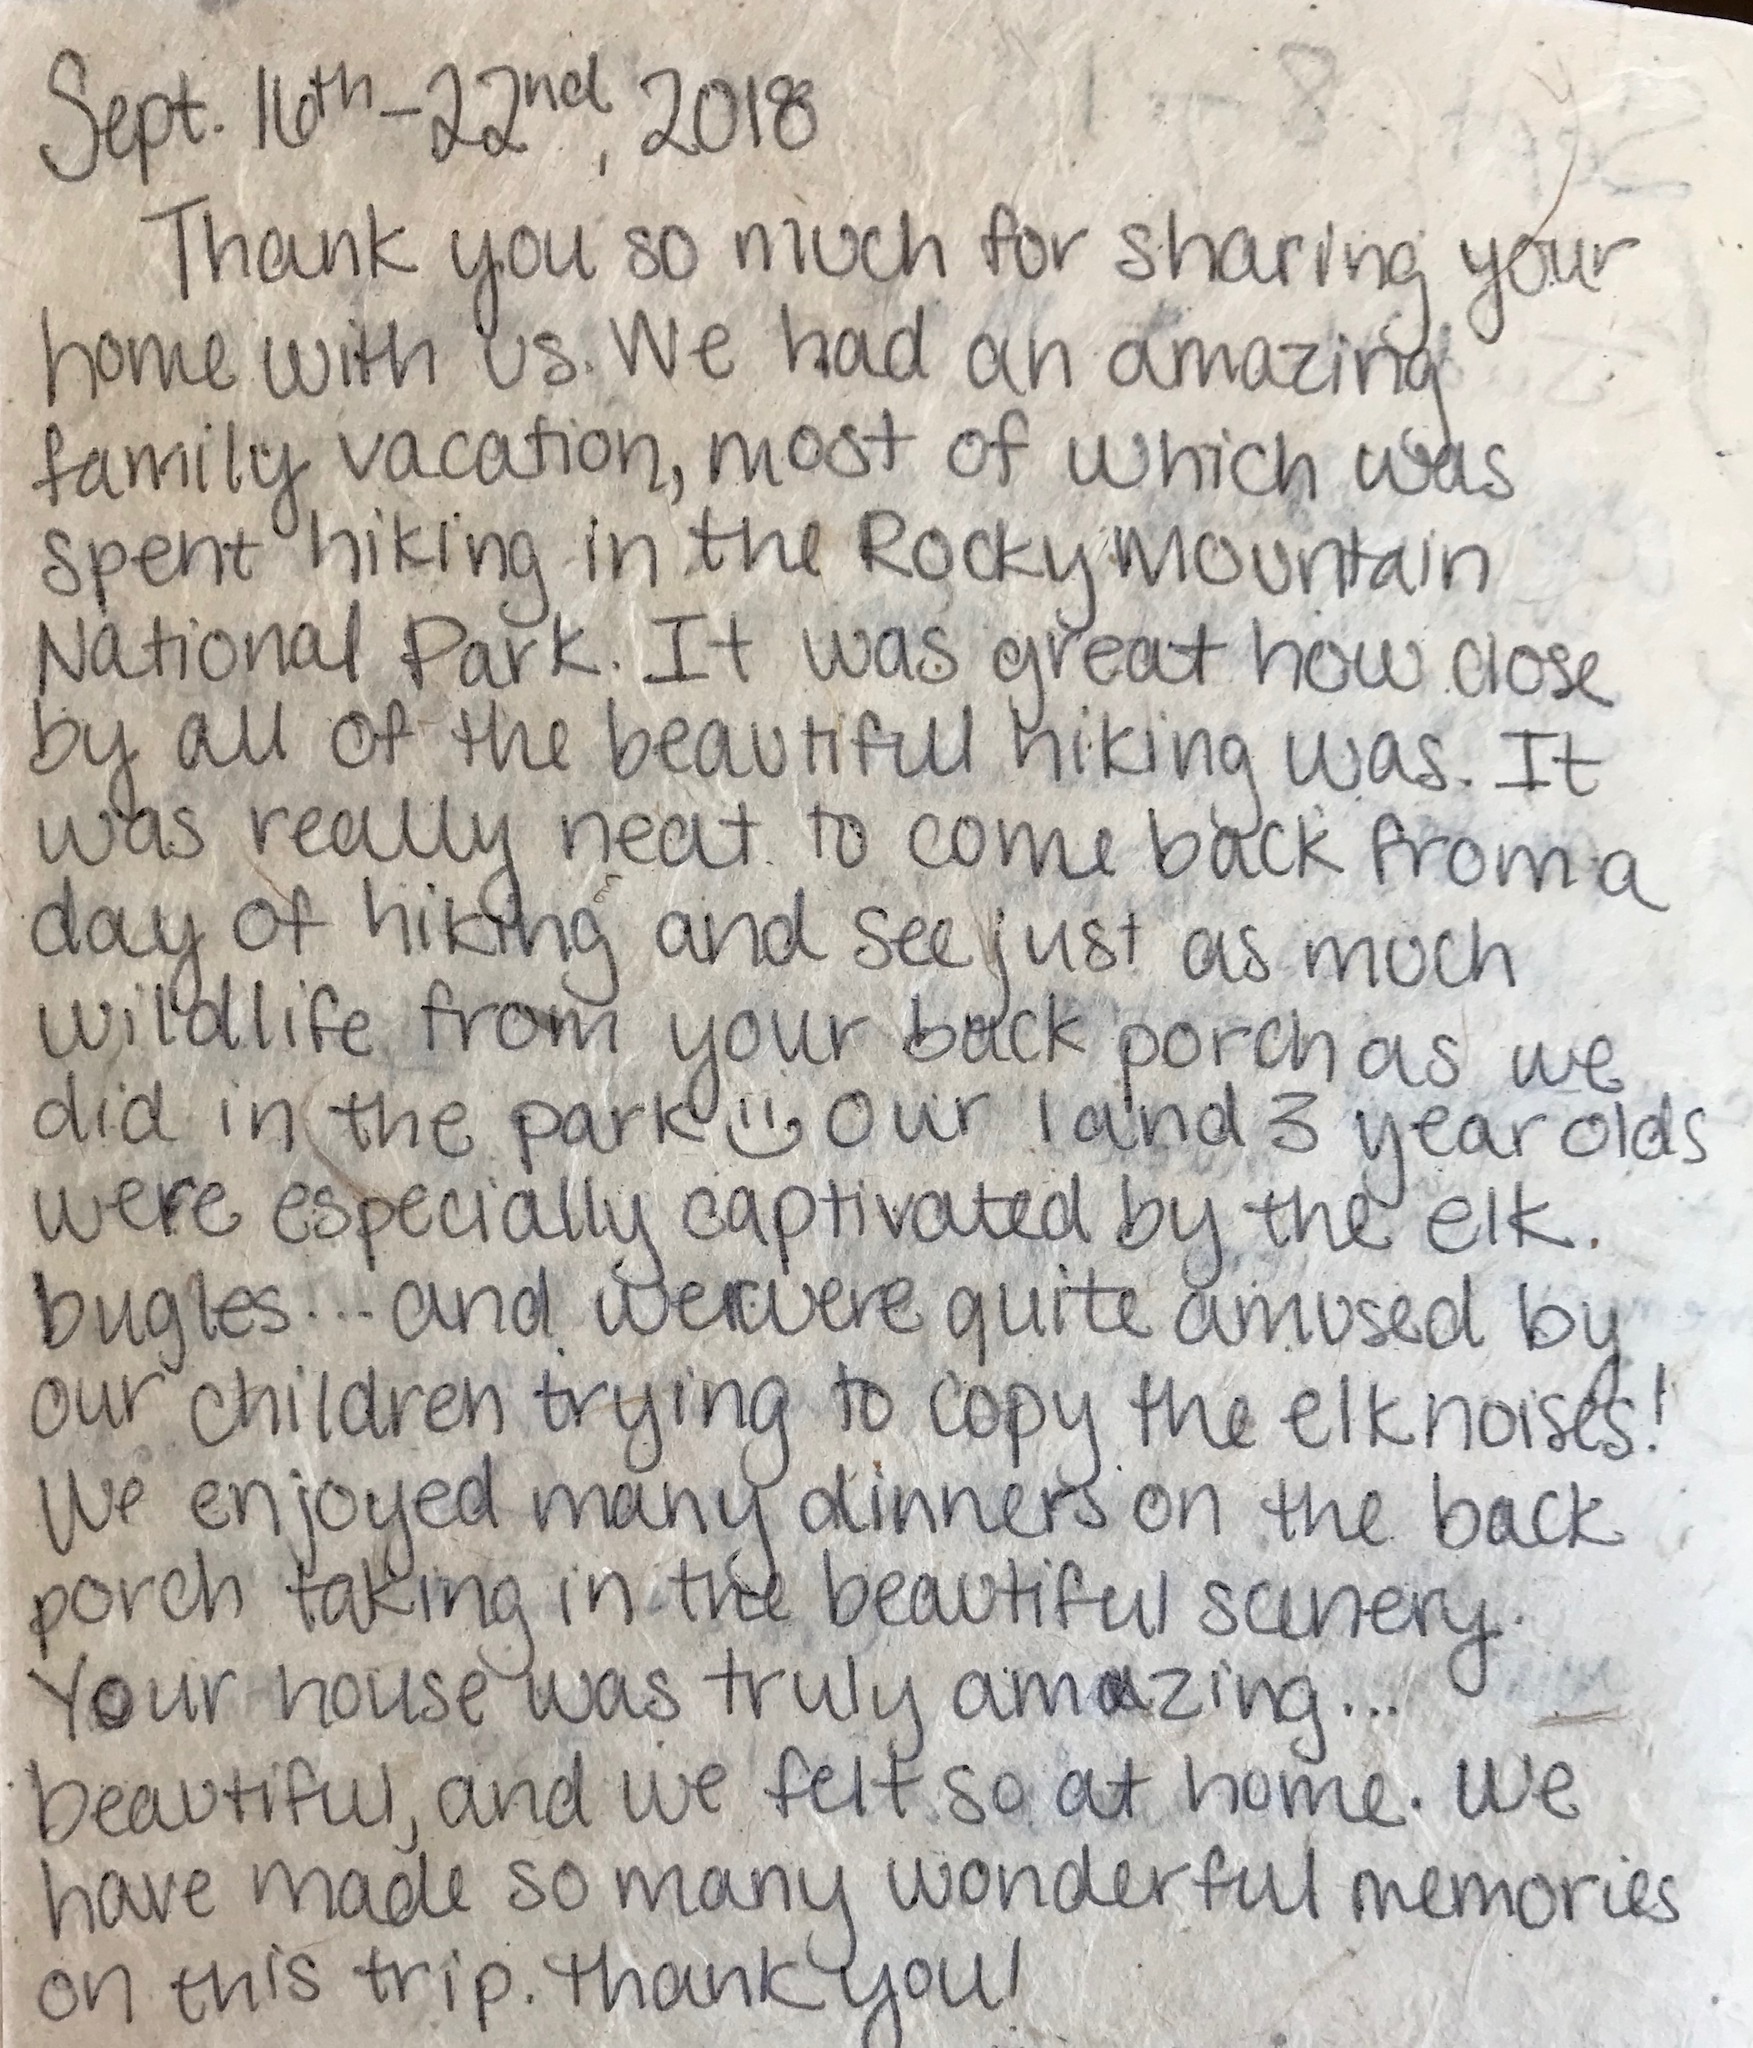 Sept. 16th-22nd, 2018
Thank you so much for sharing your
home with us. We had an amazing
family vacation, most of which was
spent hiking in the Rocky Mountain
National Park. It was great how close
by all of the beautiful hiking was. It
was really neat to come back from a
day of hiking and see just as much
wildlife from your back porch as we
did in the park :) Our 1 and 3 year olds
were especially captivated by the elk
bugles... and we were quite amused by
our children trying to copy the elk noises!
We enjoyed many dinners on the back
porch taking in the beautiful scenery.
Your house was truly amazing...
beautiful, and we felt so at home. We
have made so many wonderful memories
on this trip. Thank you!